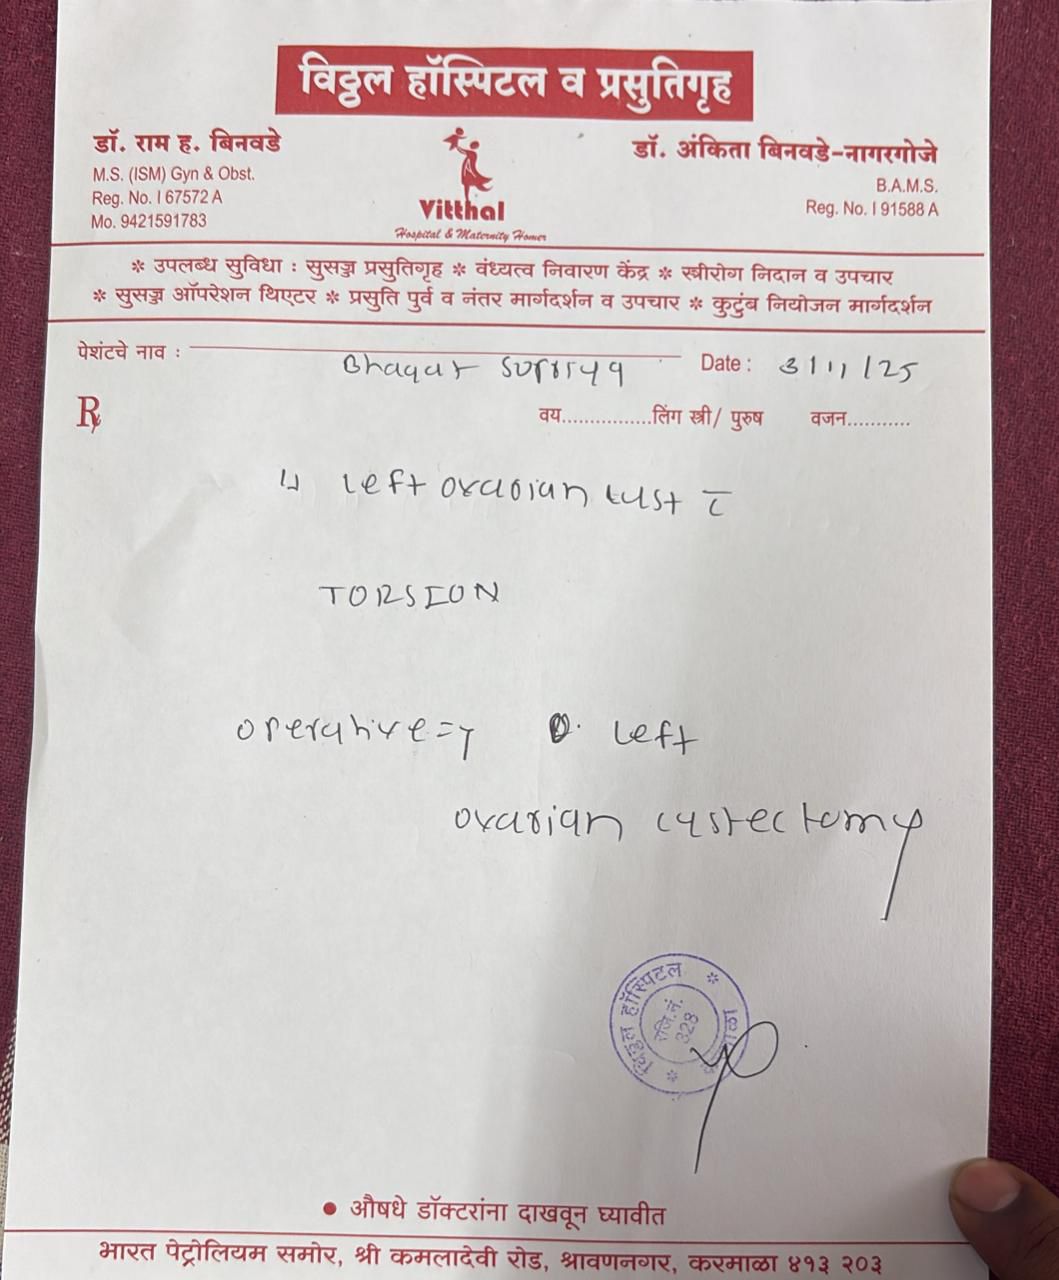 विठ्ठल हॉस्पिटल व प्रसुतिगृह
डॉ. राम ह. बिनवडे
M.S. (ISM) Gyn & Obst.
Reg. No. I 67572 A
Mo. 9421591783
Vitthal
Hospital & Maternity Homer
डॉ. अंकिता बिनवडे-नागरगोजे
B.A.M.S.
Reg. No. I 91588 A
* उपलब्ध सुविधा : सुसज्ज प्रसुतिगृह * वंध्यत्व निवारण केंद्र * स्त्रीरोग निदान व उपचार
* सुसज्ज ऑपरेशन थिएटर * प्रसुति पुर्व व नंतर मार्गदर्शन व उपचार * कुटुंब नियोजन मार्गदर्शन
पेशंटचे नाव : Bhagat Date : 3/11/25
Rx वय............... लिंग स्त्री/ पुरुष वजन...........
left ovarian cyst c̄
TORSION
operative => left
ovarian cystectomy
विठ्ठल हॉस्पिटल
रजि. नं.
328
• औषधे डॉक्टरांना दाखवून घ्यावीत
भारत पेट्रोलियम समोर, श्री कमलादेवी रोड, श्रावणनगर, करमाळा ४१३ २०३